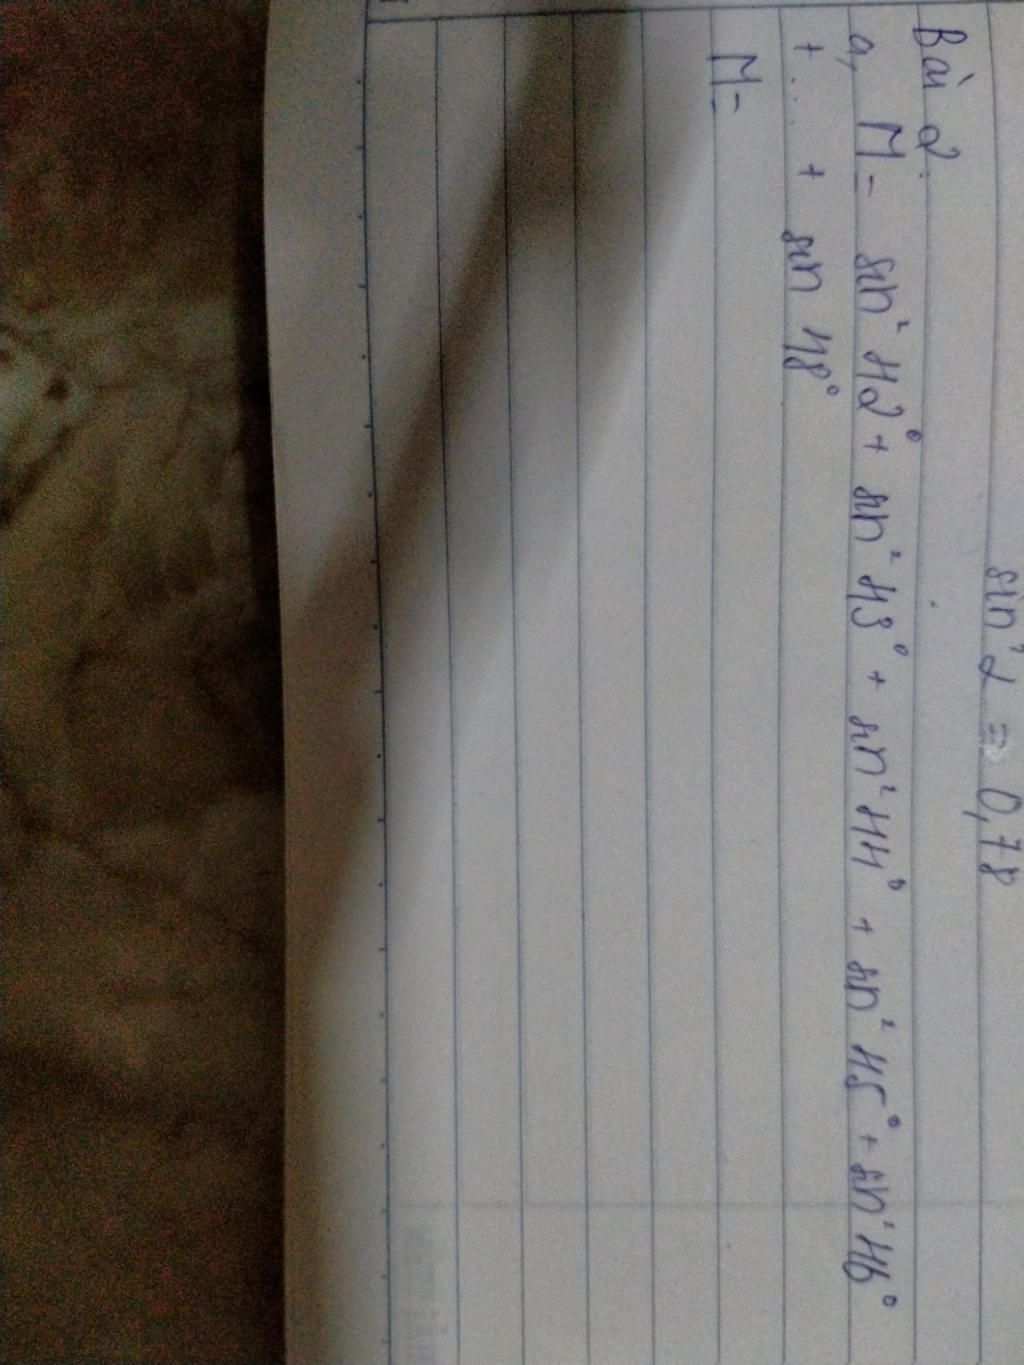 sin²α = 0,78
Bài 2.
a, M = sin² 42° + sin² 43° + sin² 44° + sin² 45° + sin² 46°
+ ... + sin 48°
M =